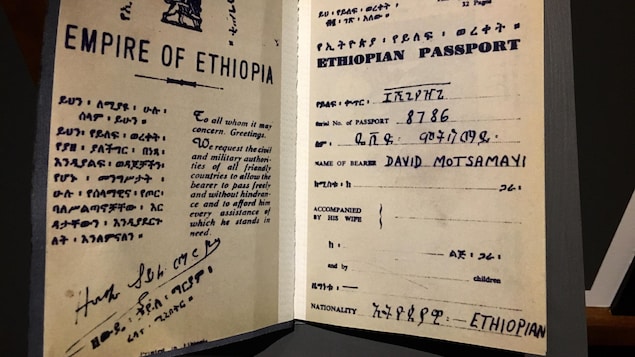 EMPIRE OF ETHIOPIA
ይህን፡ ለሚያዩ፡ ሁሉ፡
ሰላም፡ ይሁን።
ይህን፡ የይለፍ፡ ወረቀት፡
የያዘ፡ ያለችግር፡ በነጻ፡
እንዲያልፍ፡ ወዳጆቻችን፡
የሆኑ፡ መንግሥታት፡
ሁሉ፡ የሰላማዊና፡ የጦር፡
ባለሥልጣኖቻቸው፡ እር
ዳታቸውን፡ እንዲያደርጉ
ለት፡ እንለምናለን።
To all whom it may
concern. Greetings.
We request the civil
and military authori-
ties of all friendly
countries to allow the
bearer to pass freely
and without hindran-
ce and to afford him
every assistance of
which he stands in
need.
32 Pages
ይህ፡ የይለፍ፡ ወረቀት፡
ገጽ፡ አለው።
የኢትዮጵያ፡ የይለፍ፡ ወረቀት።
ETHIOPIAN PASSPORT
የይለፍ፡ ቍጥር፡
Serial No. of PASSPORT 8786
ስም፡ ዴቪድ፡
NAME OF BEARER DAVID MOTSAMAYI
ከሚስቱ፡ ከ ጋራ፡
ACCOMPANIED
BY HIS WIFE
ከ፡ ልጅ፡ ጋራ፡
and by children
ዜግነቱ፡
NATIONALITY ኢትዮጵያዊ፡ ETHIOPIAN